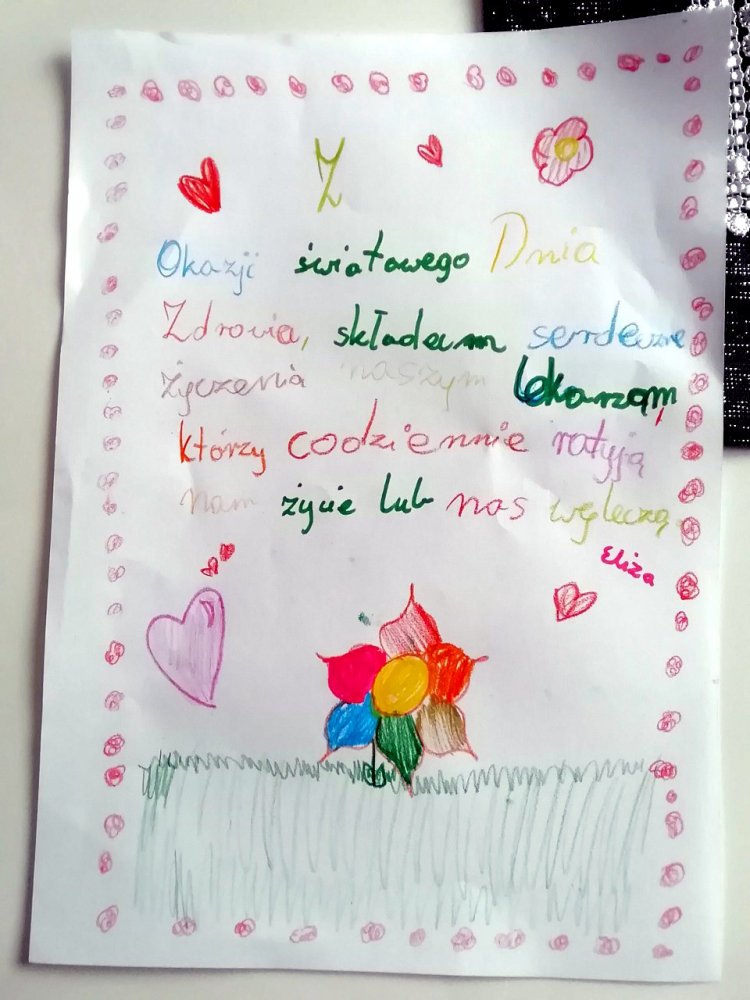 Z
Okazji światowego Dnia
Zdrowia, składam serdeczne
życzenia naszym lekarzom,
którzy codziennie ratyją
nam życie lub nas wyleczą.
Eliza